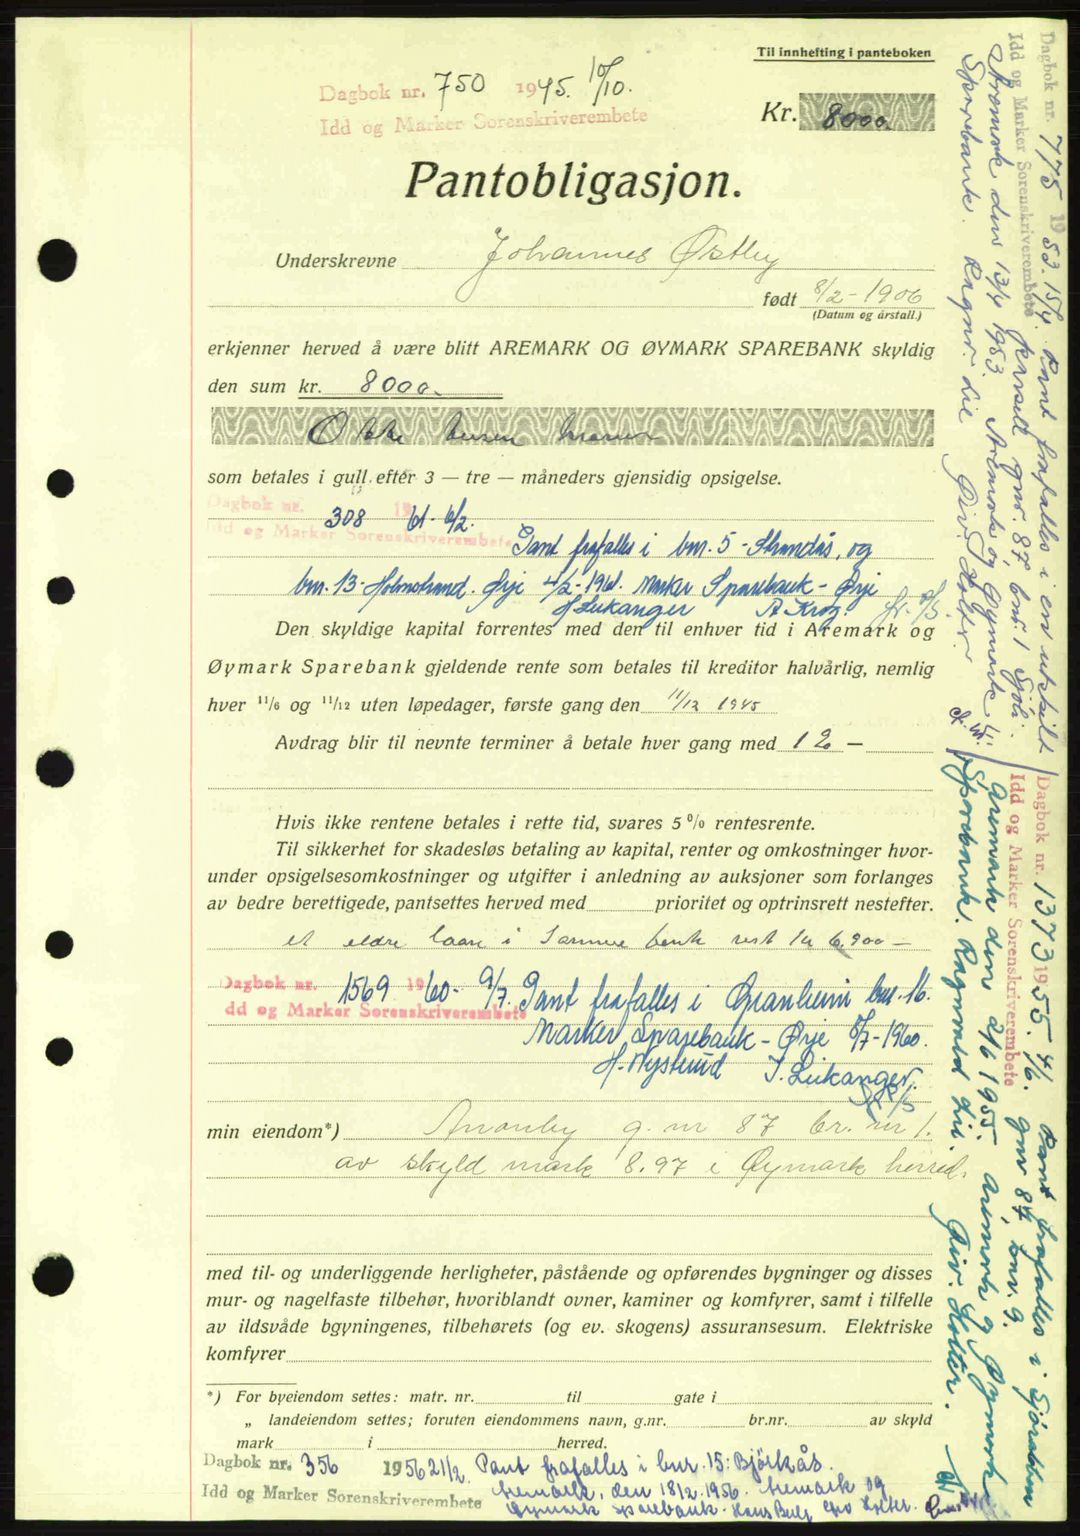 Til innhefting i panteboken
Dagbok nr. 750 1945. 10/10.
Idd og Marker Sorenskriverembete
Kr. 8000.
Pantobligasjon.
Underskrevne Johannes Østby
født 8/2-1906
(Datum og årstall.)
erkjenner herved å være blitt AREMARK OG ØYMARK SPAREBANK skyldig
den sum kr. 8000.
Otte tusen kroner
som betales i gull efter 3 — tre — måneders gjensidig opsigelse.
Dagbok nr. 308 1961 - 6/2.
Idd og Marker Sorenskriverembete
Pant frafalles i bnr. 5 - Strandås, og
bnr. 13 - Holmstrand. Ørje 4/2-1961. Marker Sparebank - Ørje
H Leikanger A Krog.
Den skyldige kapital forrentes med den til enhver tid i Aremark og
Øymark Sparebank gjeldende rente som betales til kreditor halvårlig, nemlig
hver 11/6 og 11/12 uten løpedager, første gang den 11/12 1945
Avdrag blir til nevnte terminer å betale hver gang med 12 —
Hvis ikke rentene betales i rette tid, svares 5 0/0 rentesrente.
Til sikkerhet for skadesløs betaling av kapital, renter og omkostninger hvor-
under opsigelsesomkostninger og utgifter i anledning av auksjoner som forlanges
av bedre berettigede, pantsettes herved med prioritet og optrinsrett nestefter.
et eldre laan i samme bank rest kr 6.900 —
Dagbok nr. 1569 1960 - 9/7.
Idd og Marker Sorenskriverembete
Pant frafalles i Granheim bnr. 16.
Marker Sparebank - Ørje 8/7-1960.
H. Nystuud I. Leikanger.
min eiendom*) Ananby g. nr 87 br. nr 1.
av skyld mark 8.97 i Øymark herred.
med til- og underliggende herligheter, påstående og opførendes bygninger og disses
mur- og nagelfaste tilbehør, hvoriblandt ovner, kaminer og komfyrer, samt i tilfelle
av ildsvåde bgyningenes, tilbehørets (og ev. skogens) assuransesum. Elektriske
komfyrer
*) For byeiendom settes: matr. nr. til gate i
„ landeiendom settes; foruten eiendommens navn, g.nr. br.nr. av skyld
mark i herred.
Dagbok nr. 356 1956 21/2.
Idd og Marker Sorenskriverembete
Pant frafalles i bnr. 15: Bjørkås.
Aremark, den 18/2. 1956. Aremark og
Øymark sparebank. Hans Buer Eivo Holter.
Dagbok nr. 775 1953. 15/4.
Idd og Marker Sorenskriverembete
Pant frafalles i en utskilt
parsell gnr. 87 bnr. 1 Sjøli.
Aremark den 13/4 1953. Aremark og Øymark
Sparebank. Ragnv. Lie Eiv. Holter.
Dagbok nr. 1373 1955. 4/6.
Idd og Marker Sorenskriverembete
Pant frafalles i Sjørshem
gnr 87, bnr. 9.
Aremark den 2/6 1955. Aremark og Øymark
Sparebank. Ragnvald Lie. Eiv. Holter.